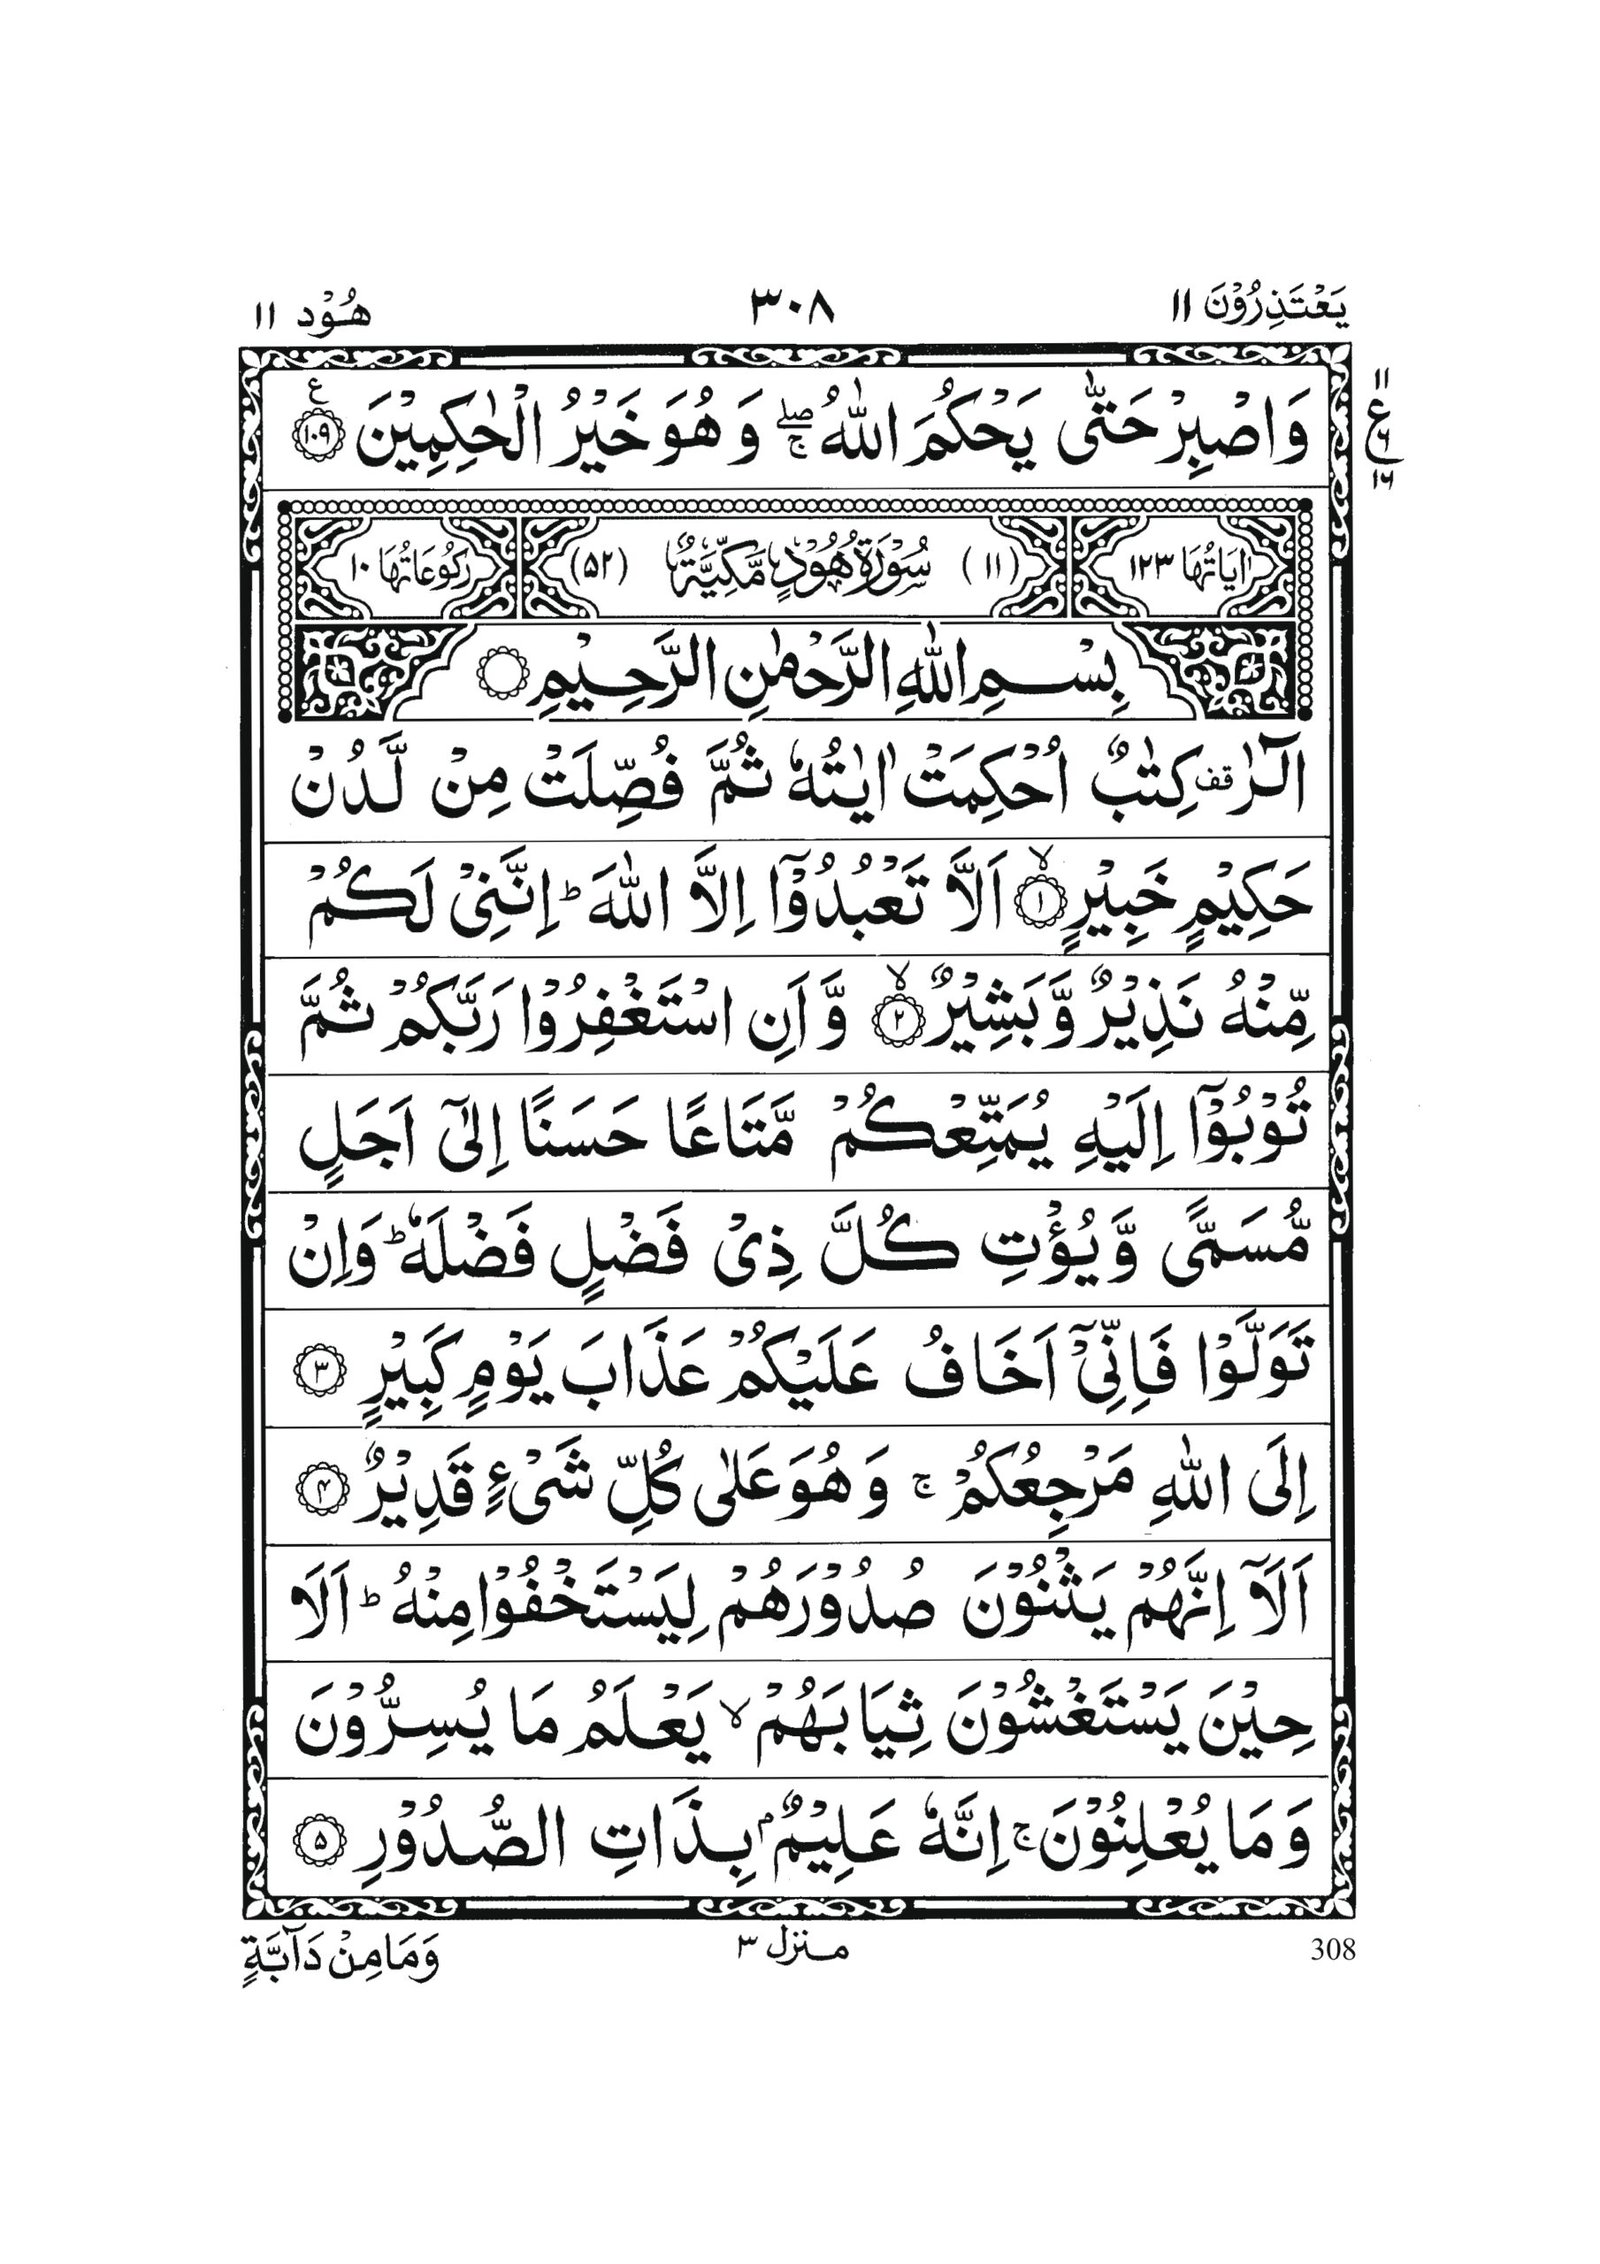 يَعْتَذِرُوْنَ ١١ ٣٠٨ هُوْد ١١
١١
ع
٦
١٦
وَاصْبِرْ حَتّٰى يَحْكُمَ اللّٰهُ ۚۖ وَهُوَ خَيْرُ الْحٰكِمِيْنَ ۧ ١٠٩
اٰيَاتُهَا ١٢٣ (١١) سُوْرَةُ هُوْدٍ مَّكِّيَّةٌ (٥٢) رُكُوْعَاتُهَا ١٠
بِسْمِ اللّٰهِ الرَّحْمٰنِ الرَّحِيْمِ
الٓرٰ قف كِتٰبٌ اُحْكِمَتْ اٰيٰتُهٗ ثُمَّ فُصِّلَتْ مِنْ لَّدُنْ
حَكِيْمٍ خَبِيْرٍ ۙ ١ اَلَّا تَعْبُدُوْٓا اِلَّا اللّٰهَ ؕ اِنَّنِىْ لَكُمْ
مِّنْهُ نَذِيْرٌ وَّبَشِيْرٌ ۙ ٢ وَّاَنِ اسْتَغْفِرُوْا رَبَّكُمْ ثُمَّ
تُوْبُوْٓا اِلَيْهِ يُمَتِّعْكُمْ مَّتَاعًا حَسَنًا اِلٰٓى اَجَلٍ
مُّسَمًّى وَّيُؤْتِ كُلَّ ذِىْ فَضْلٍ فَضْلَهٗ ؕ وَاِنْ
تَوَلَّوْا فَاِنِّىْٓ اَخَافُ عَلَيْكُمْ عَذَابَ يَوْمٍ كَبِيْرٍ ٣
اِلَى اللّٰهِ مَرْجِعُكُمْ ۚ وَهُوَ عَلٰى كُلِّ شَىْءٍ قَدِيْرٌ ٤
اَلَآ اِنَّهُمْ يَثْنُوْنَ صُدُوْرَهُمْ لِيَسْتَخْفُوْا مِنْهُ ؕ اَلَا
حِيْنَ يَسْتَغْشُوْنَ ثِيَابَهُمْ ۙ يَعْلَمُ مَا يُسِرُّوْنَ
وَمَا يُعْلِنُوْنَ ۚ اِنَّهٗ عَلِيْمٌۢ بِذَاتِ الصُّدُوْرِ ٥
308 منزل ٣ وَمَا مِنْ دَآبَّةٍ